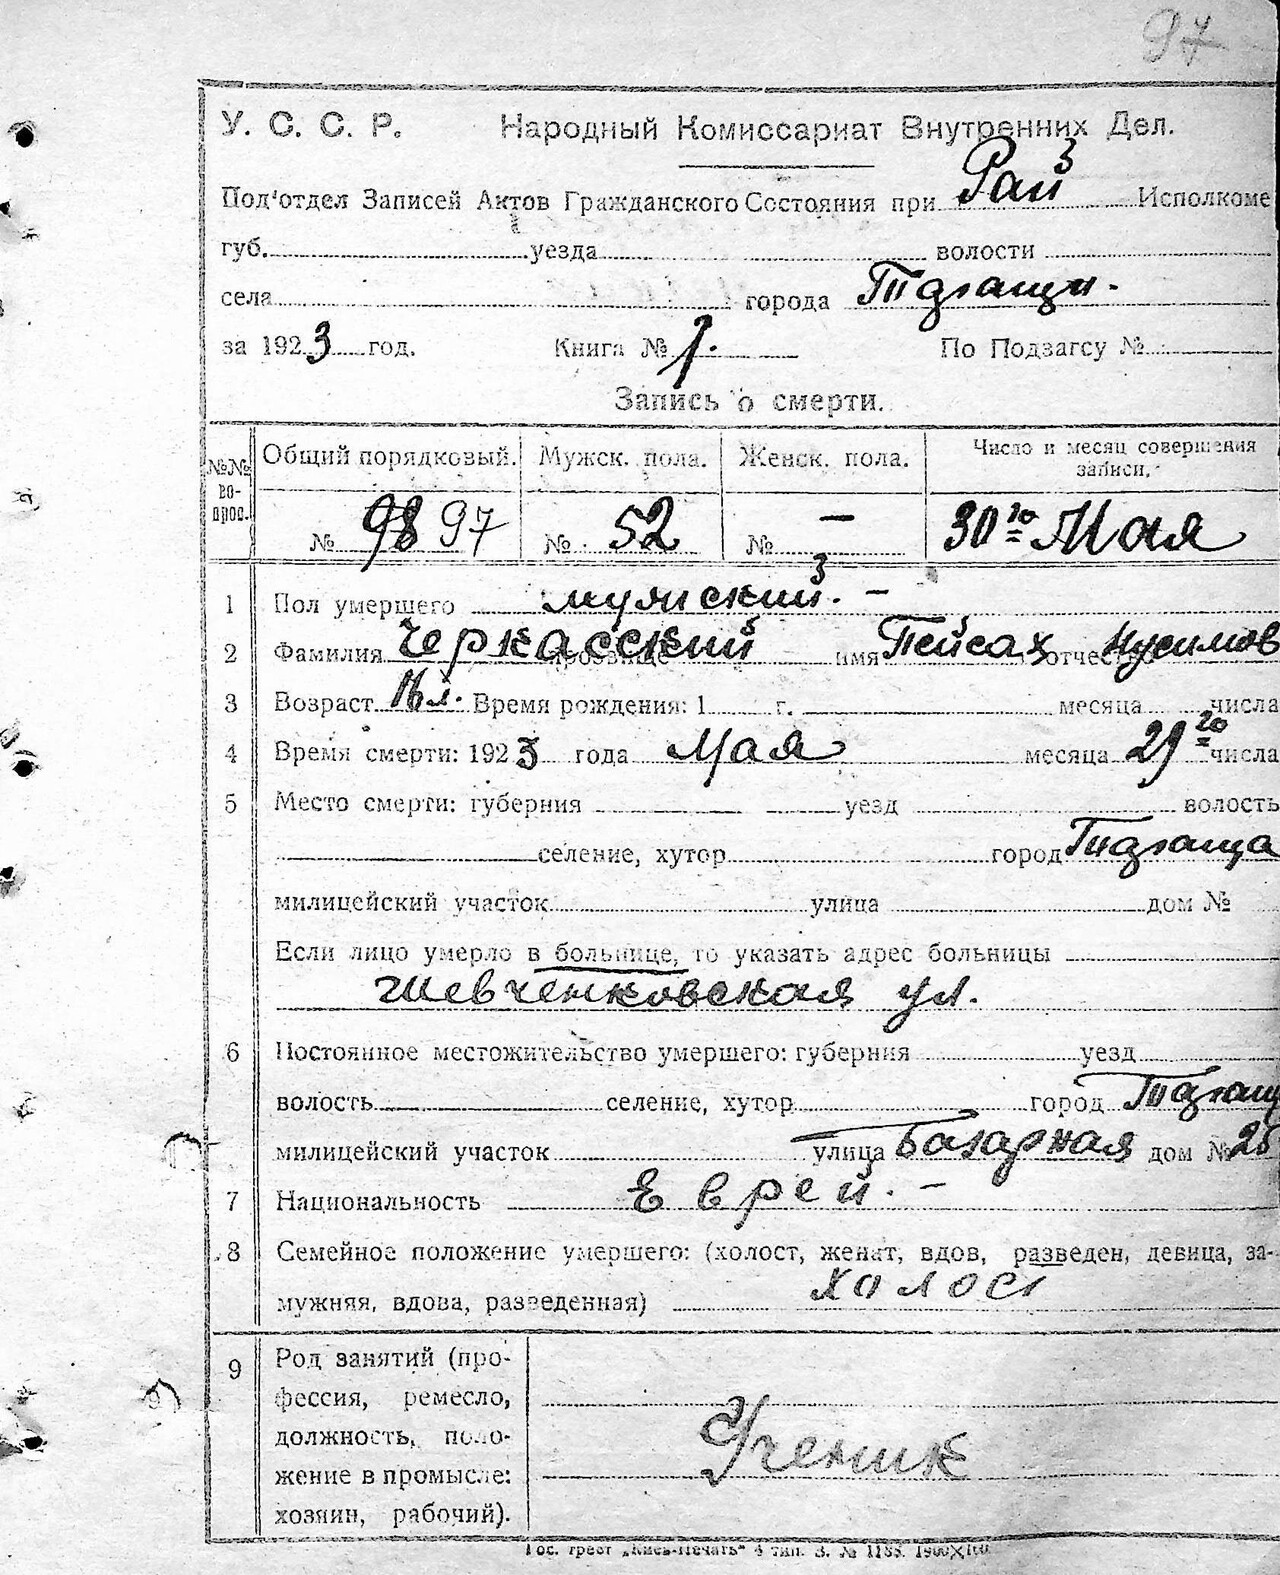 97
У. С. С. Р. Народный Комиссариат Внутренних Дел.
Под'отдел Записей Актов Гражданского Состояния при Рай Исполкоме
губ. уезда волости
села города
за 1923 год. Книга № 1. По Подзагсу №
Запись о смерти.
№№ во- прос. Общий порядковый. Мужск. пола. Женск. пола. Число и месяц совершения записи.
№ 98 97 № 52 № — 30го Мая
1 Пол умершего мужский. —
2 Фамилия Черкасский прозвище имя Пейсах отчество Нусимов
3 Возраст лет. Время рождения: 1 г. месяца числа
4 Время смерти: 1923 года Мая месяца 29го числа
5 Место смерти: губерния уезд волость
селение, хутор город
милицейский участок улица дом №
Если лицо умерло в больнице, то указать адрес больницы
Шевченковская ул.
6 Постоянное местожительство умершего: губерния уезд
волость селение, хутор город
милицейский участок улица Базарная дом №
7 Национальность Еврей. —
8 Семейное положение умершего: (холост, женат, вдов, разведен, девица, за-
мужняя, вдова, разведенная) холост
9 Род занятий (про-
фессия, ремесло,
должность, поло-
жение в промысле:
хозяин, рабочий).
Ученик
Гос. трест „Киев-Печать" 4 тип. З. № 1188.